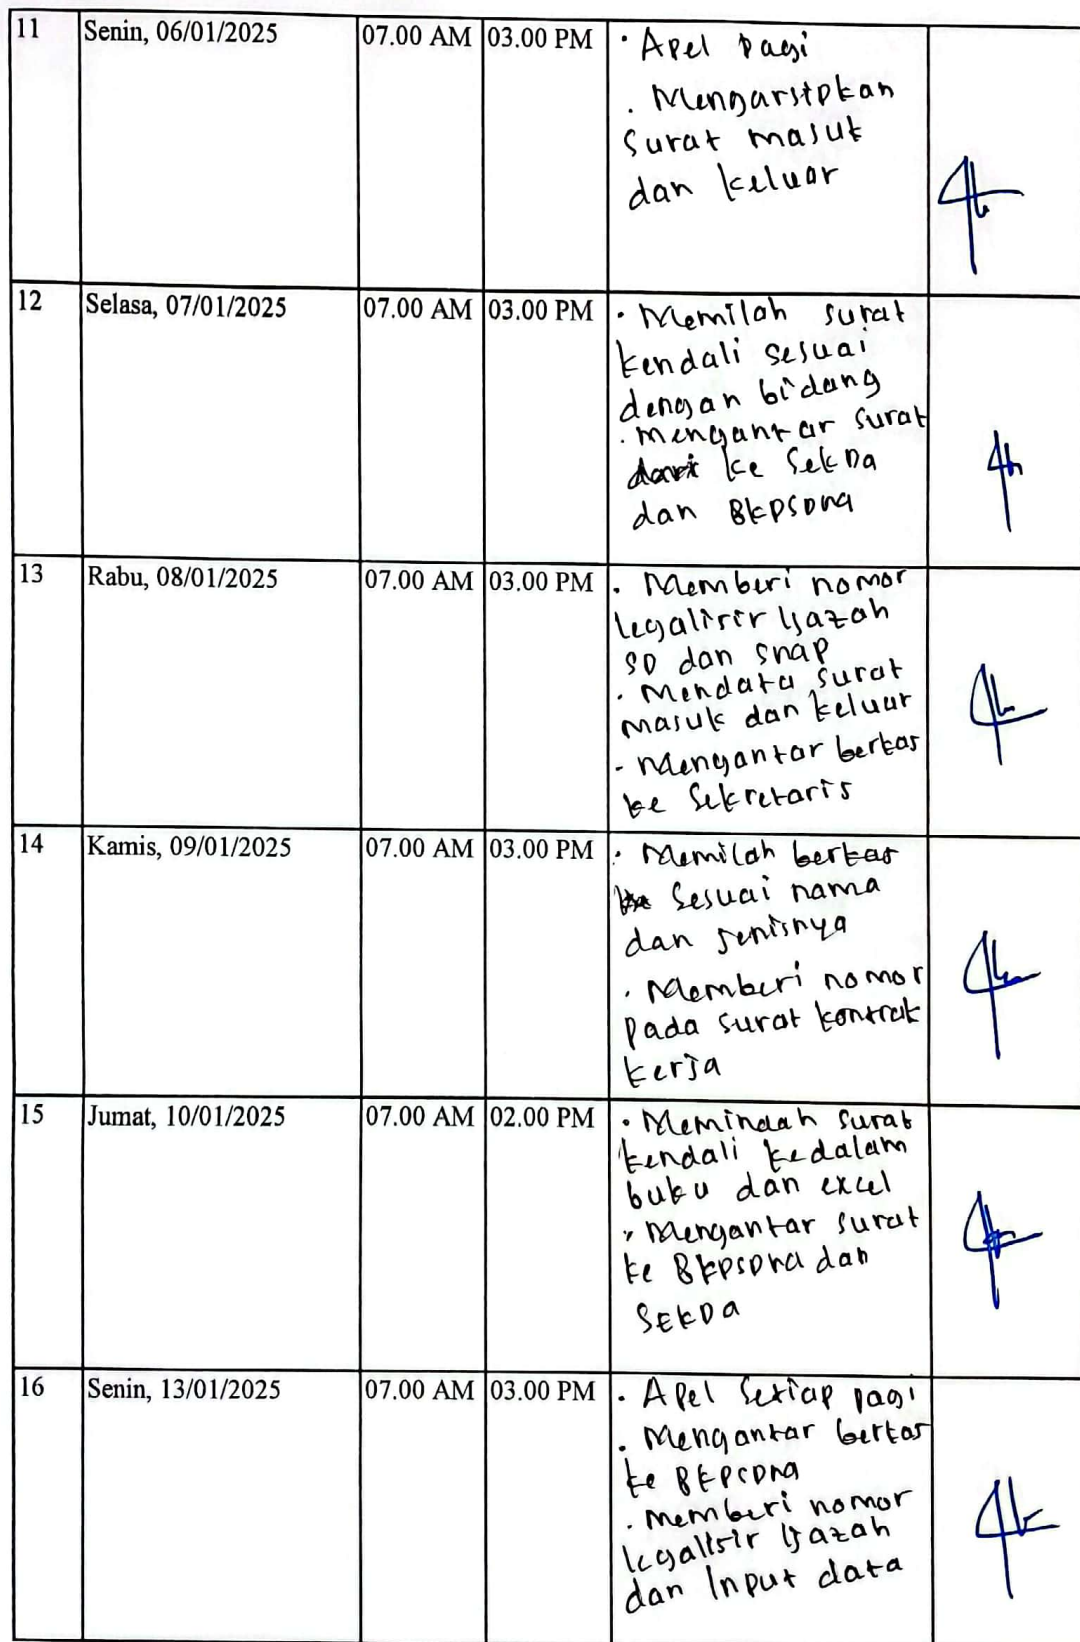 11 Senin, 06/01/2025 07.00 AM 03.00 PM · Apel pagi
. Mengarsipkan
Surat masuk
dan keluar
12 Selasa, 07/01/2025 07.00 AM 03.00 PM · Memilah surat
kendali sesuai
dengan bidang
. mengantar surat
ke SekDa
dan BKPSDMA
13 Rabu, 08/01/2025 07.00 AM 03.00 PM . Memberi nomor
legalisir Ijazah
SD dan
. Mendata surat
masuk dan keluar
- Mengantar berkas
ke Sekretaris
14 Kamis, 09/01/2025 07.00 AM 03.00 PM · Memilah berkas
Sesuai nama
dan jenisnya
. Memberi nomor
pada surat kontrak
kerja
15 Jumat, 10/01/2025 07.00 AM 02.00 PM · Memindah surat
kendali kedalam
buku dan excel
, Mengantar surat
ke BKPSDMA dan
SEKDA
16 Senin, 13/01/2025 07.00 AM 03.00 PM . Apel Setiap pagi
. Mengantar berkas
ke BKPSDMA
. memberi nomor
legalisir Ijazah
dan Input data